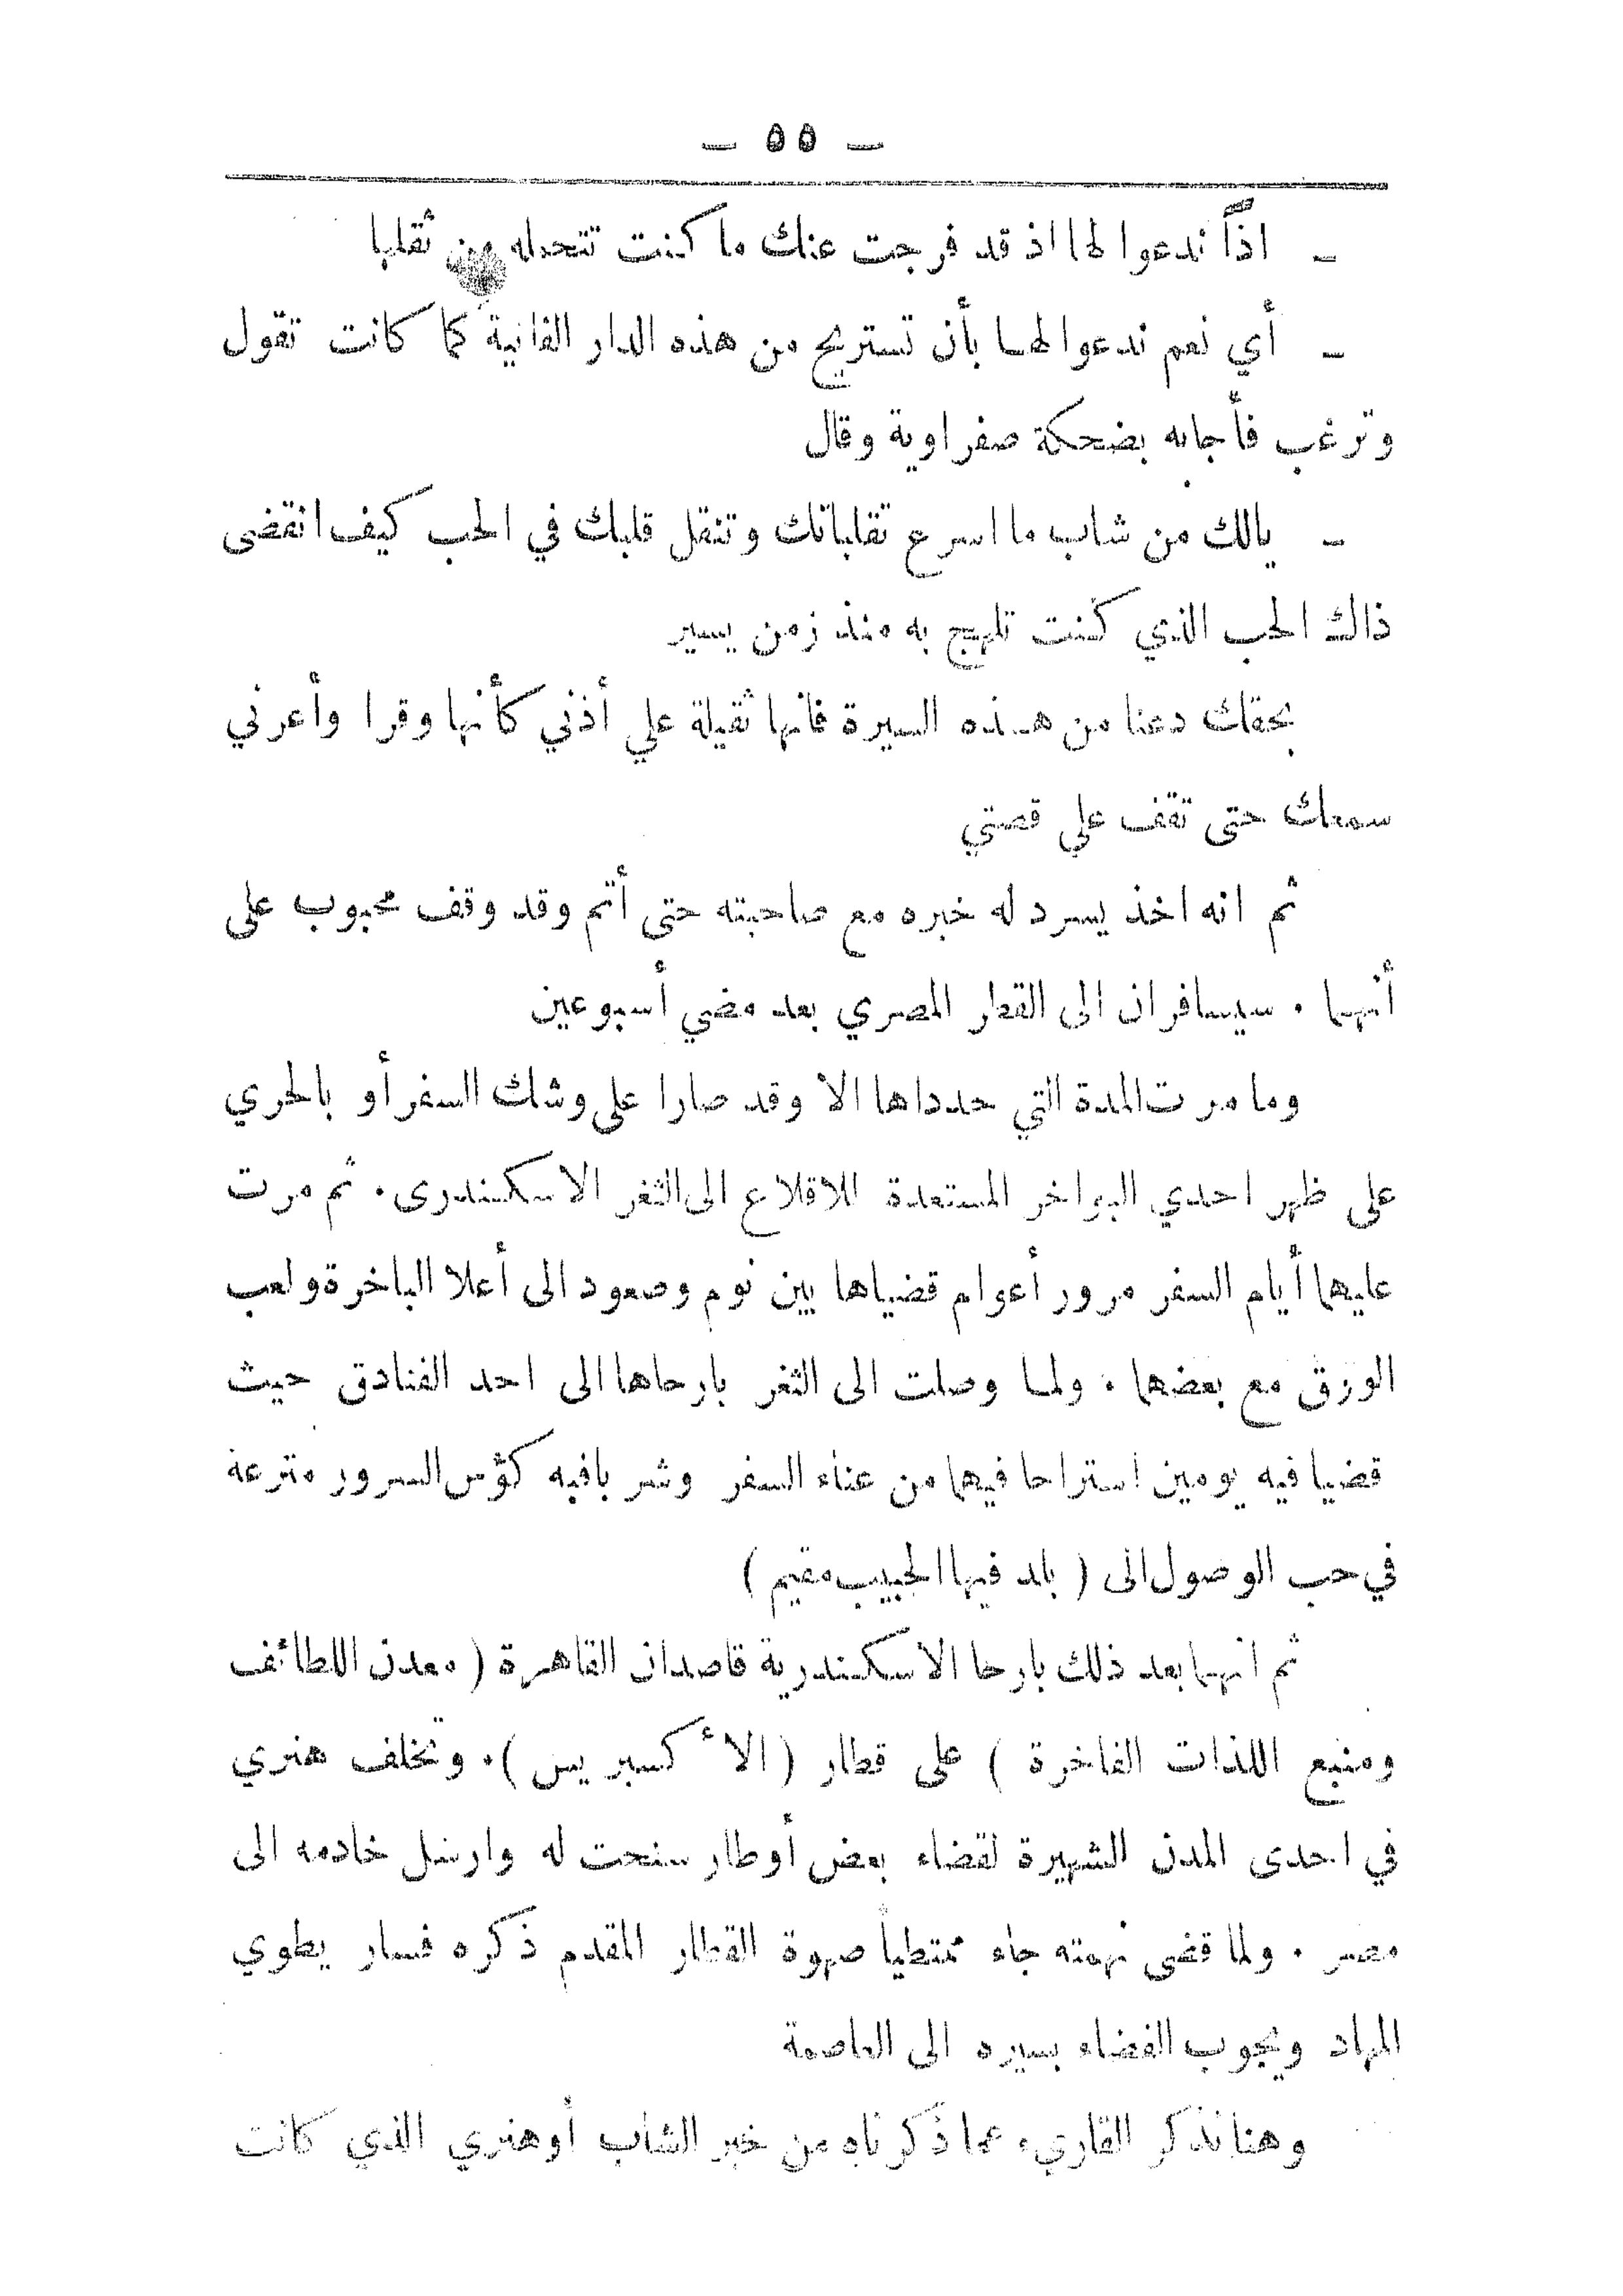 — ٥٥ —
— اذاً ندعوا لها اذ قد فرجت عنك ما كنت تتحمله من ثقلها
— أي نعم ندعوا لهما بأن تستريح من هذه الدار الفانية كما كانت تقول
وترغب فأجابه بضحكة صفراوية وقال
— يالك من شاب ما اسرع تقلباتك وتنقل قلبك في الحب كيف انقضى
ذاك الحب الذي كنت تلهج به منذ زمن يسير
بحقك دعنا من هذه السيرة فانها ثقيلة علي أذني كأنها وقرا وأعرني
سمعك حتى تقف علي قصتي
ثم انه اخذ يسرد له خبره مع صاحبته حتى أتم وقد وقف محبوب على
أنهما . سيسافران الى القطر المصري بعد مضي أسبوعين
وما مرت المدة التي حدداها الا وقد صارا على وشك السفر أو بالحري
على ظهر احدي البواخر المستعدة للاقلاع الى الثغر الاسكندرى . ثم مرت
عليهما أيام السفر مرور أعوام قضياها بين نوم وصعود الى أعلا الباخرة ولعب
الورق مع بعضهما . ولما وصلت الى الثغر بارحاها الى احد الفنادق حيث
قضيا فيه يومين استراحا فيهما من عناء السفر وشربا فيه كؤس السرور مترعة
في حب الوصول الى ( بلد فيها الحبيب مقيم )
ثم انهما بعد ذلك بارحا الاسكندرية قاصدان القاهرة ( معدن اللطائف
ومنبع اللذات الفاخرة ) على قطار ( الأ كسبريس ) . وتخلف هنري
في احدى المدن الشهيرة لقضاء بعض أوطار سنحت له وارسل خادمه الى
مصر . ولما قضى نهمته جاء ممتطياً صهوة القطار المقدم ذكره فسار يطوي
المهاد ويجوب الفضاء بسيره الى العاصمة
وهنا نذكر القاريء عما ذكرناه من خبر الشاب أو هنري الذي كانت